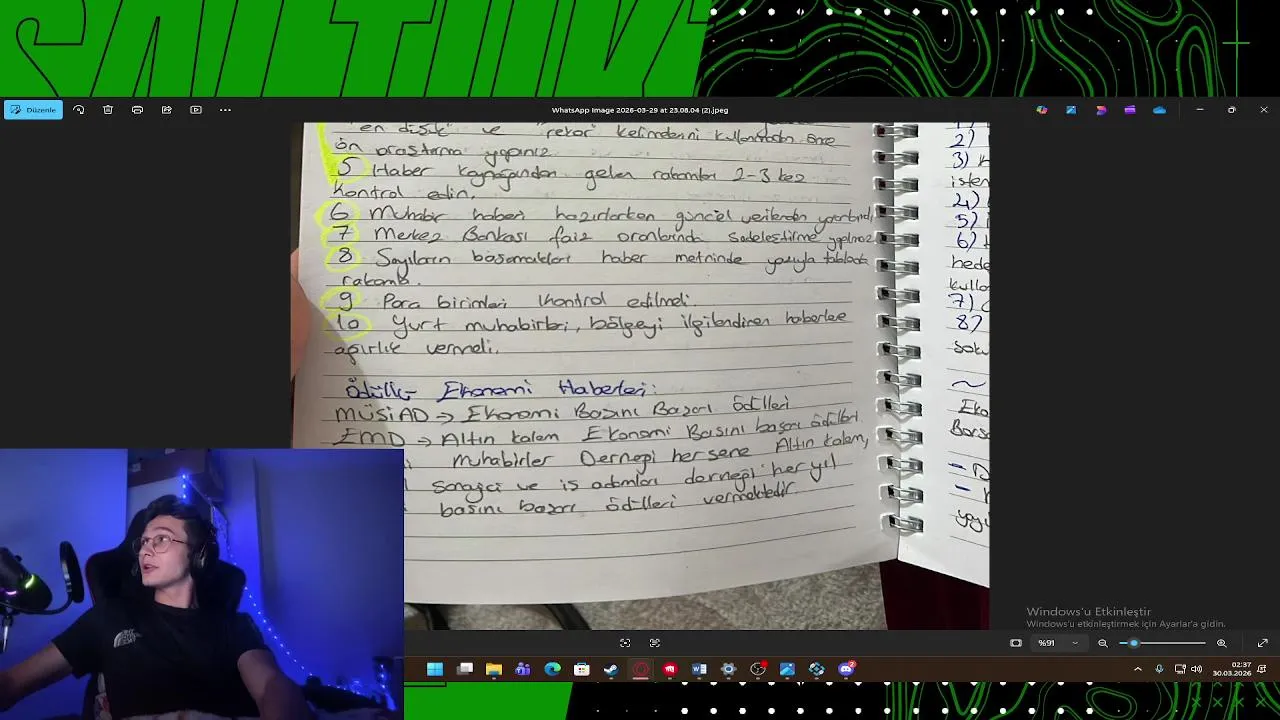 Düzenle
WhatsApp Image 2026-03-29 at 23.08.04 (2).jpeg
"en düşük" ve "rekor" kelimelerini kullanmadan önce
ön araştırma yapınız
5 Haber kaynağından gelen rakamları 2-3 kez
kontrol edin.
6 Muhabir haberi hazırlarken güncel verilerden
7 Merkez Bankası faiz oranlarında sadeleştirme yapılmaz
8 Sayıların basamakları haber metninde yazıyla tabloda
rakamla.
9 Para birimleri kontrol edilmeli.
10 Yurt muhabirleri, bölgeyi ilgilendiren haberlere
ağırlık vermeli.
Ekonomi Haberleri:
MÜSİAD → Ekonomi Basını Başarı Ödülleri
EMD → Altın kalem Ekonomi Basını başarı ödülleri
muhabirler Derneği her sene Altın kalem,
sanayici ve iş adamları derneği her yıl
basını başarı ödülleri vermektedir.
2)
3)
4)
5)
6)
7)
8)
Windows'u Etkinleştir
Windows'u etkinleştirmek için Ayarlar'a gidin.
%91
02:37
30.03.2026